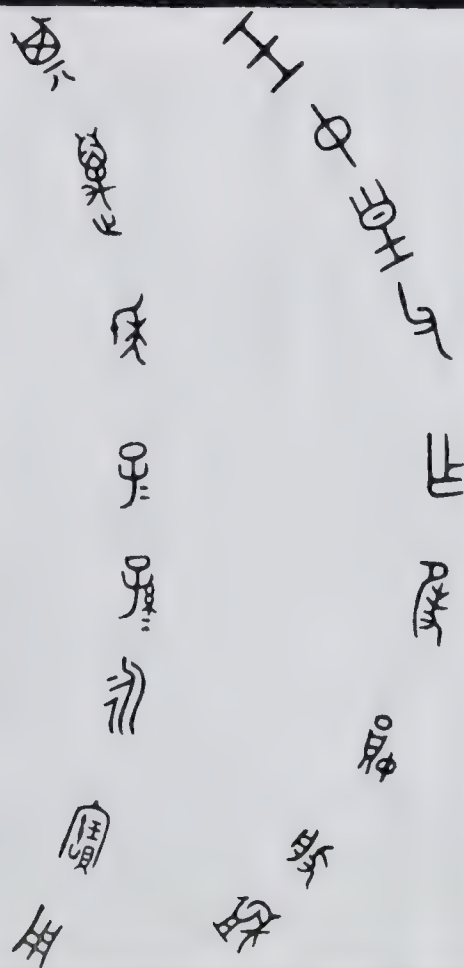 王中皇父乍般盉
其萬年子=孫=永寶用